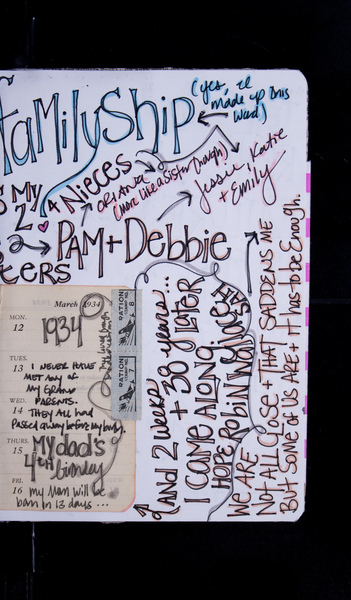 Familyship
(yes, I
made up this
word)
S My
2
4 Nieces
ORIANA
(more like a sister though)
Jessie, Katie
+ Emily
2
PAM + Debbie
TERS
March 1934
MON.
12
1934
TUES.
13
I NEVER HAVE
MET ANY OF
MY GRAND
PARENTS.
WED.
14
They ALL had
Passed away before my birth.
THURS.
15
My dad's
4th birthday
FRI.
16
my Mom will be
born in 13 days ...
RATION
8
RATION
(And 2 weeks
+ 38 years...
LATER
I CAME ALONG.
HOPE ROBIN
WE ARE
NOT ALL CLOSE + THAT SADDENS ME
BUT SOME OF US ARE + IT HAS to BE Enough.